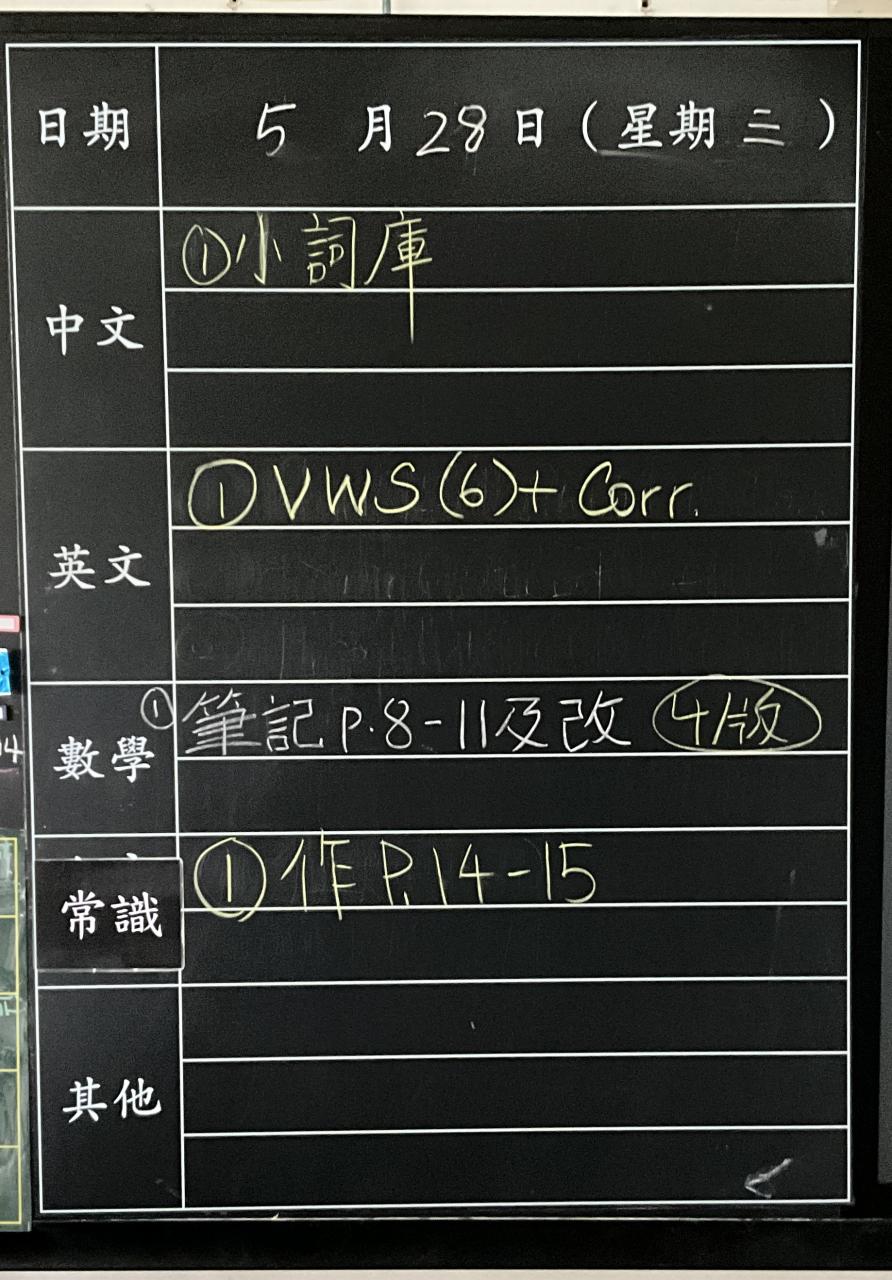 日期 5 月 28 日 (星期 三)
中文 ①小詞庫
英文 ①VWS(6)+ Corr.
數學 ①筆記 P.8-11及改 4版
常識 ①作 P.14-15
其他